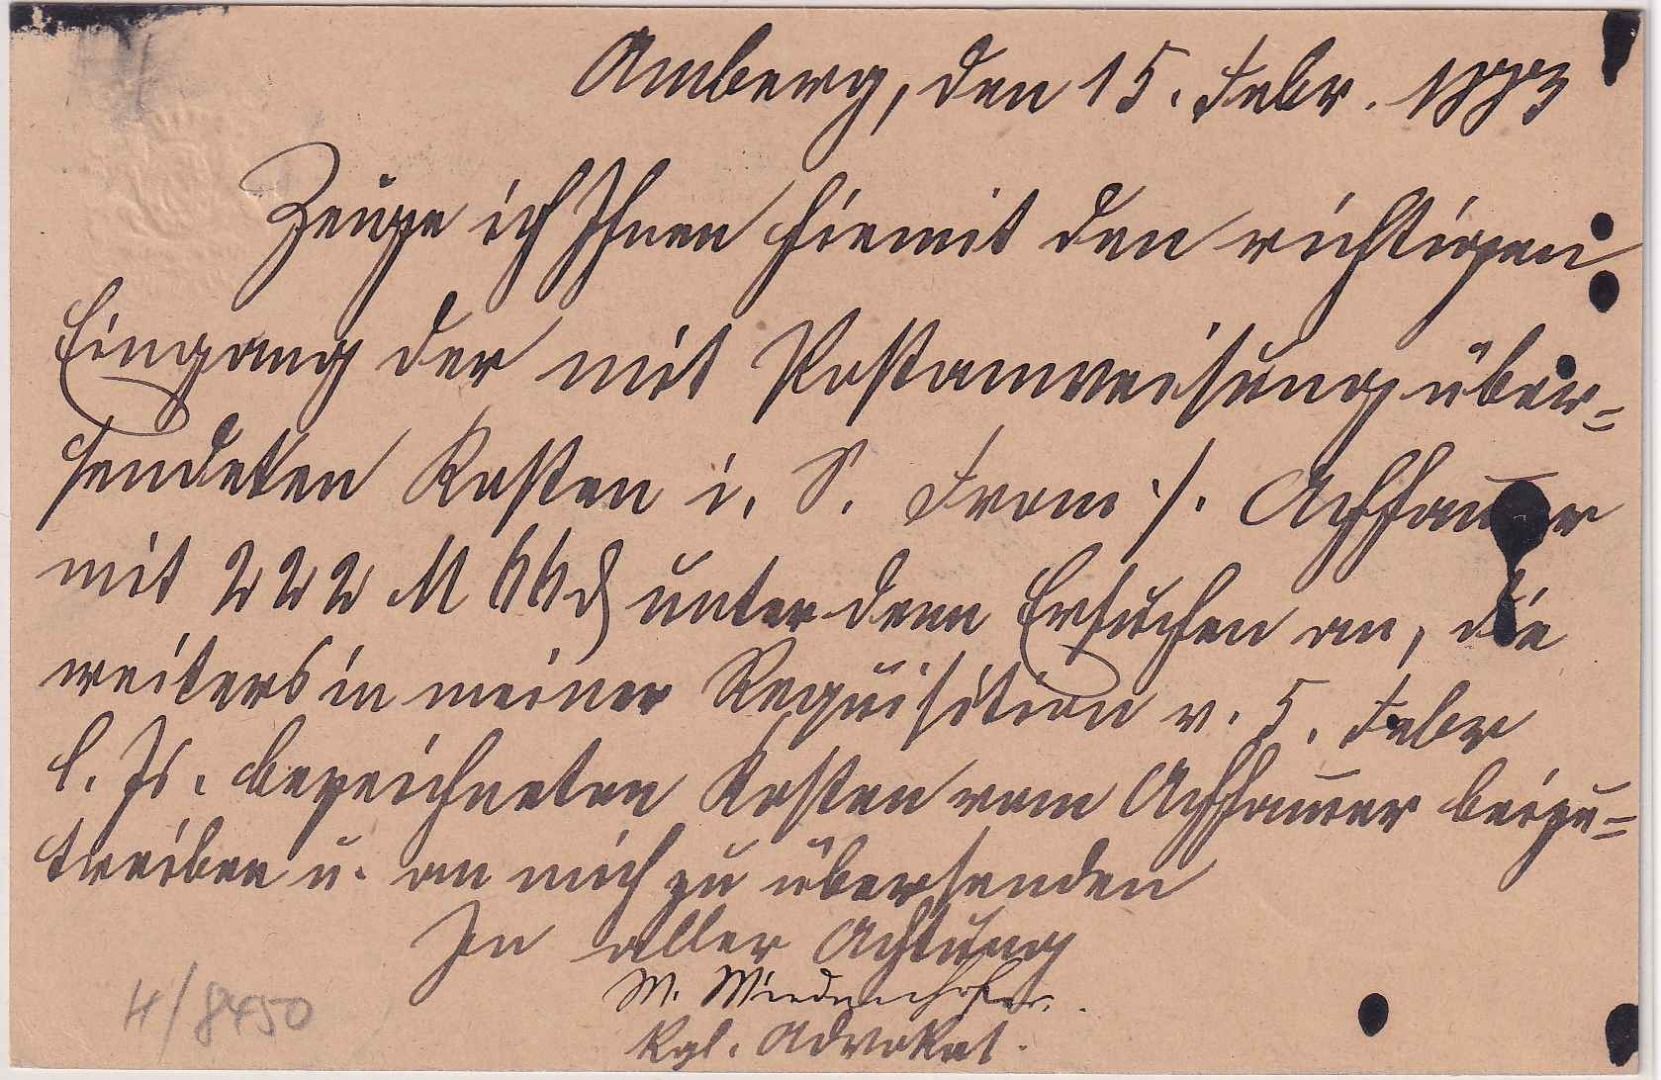 Amberg, den 15. Febr. 1883
Zeige ich Ihnen hiemit den richtigen
Eingang der mit Postanweisung über=
sendeten Kosten i. S. From ./. Achhammer
mit 222 M 66 ₰ unter dem Ersuchen an, die
weiters in meiner Requisition v. 5. Febr
l. Js. bezeichneten Kosten vom Achhammer beizu=
treiben u. an mich zu übersenden
In aller Achtung
M. Wiedenhofer.
Kgl. Advokat.
H/8450